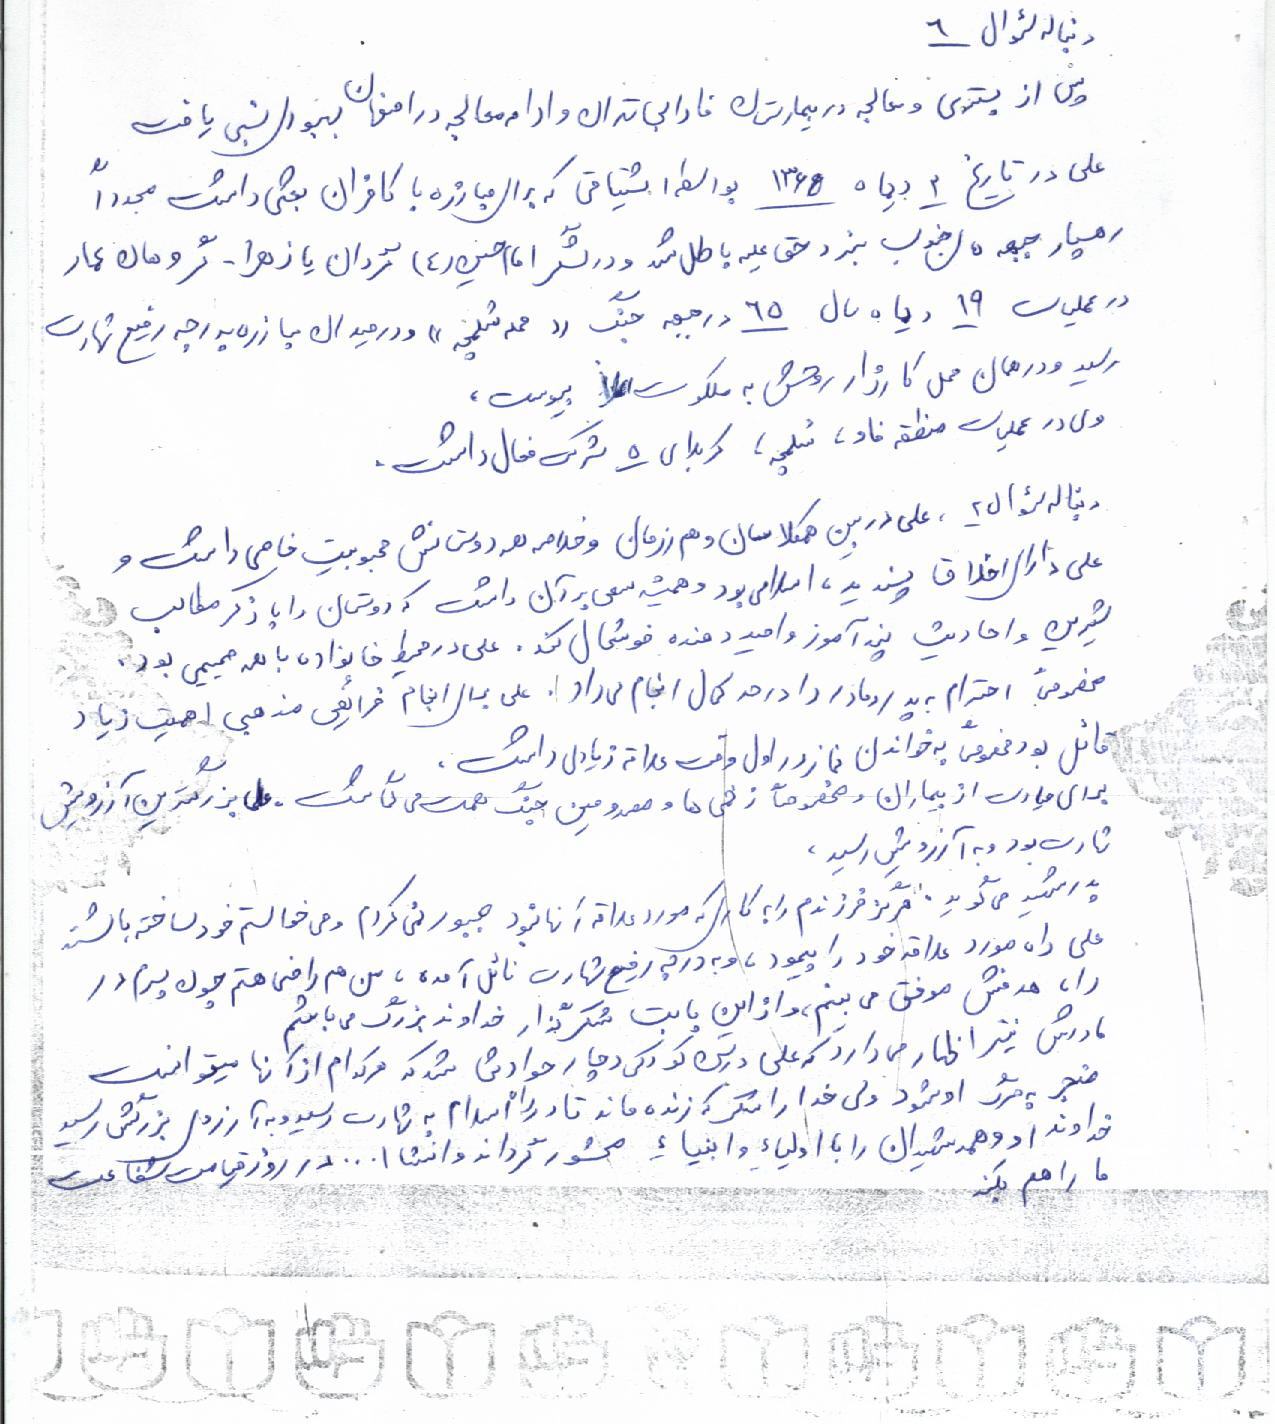 دنباله سؤال ٦
پس از بستری و معالجه در بیمارستان فارابی تهران و ادامه معالجه در اصفهان بهبودی نسبی یافت
علی در تاریخ ۲ دیماه ۱۳۶۵ بواسطه اشتیاقی که برای مبارزه با کافران بعثی داشت مجدداً
رهسپار جبهه های جنوب نبرد حق علیه باطل شد و در لشگر امام حسین (ع) گردان یا زهرا - گروهان عمار
در عملیات ۱۹ دیماه سال ٦٥ در جبهه جنگ «شلمچه» و در میدان مبارزه به درجه رفیع شهادت
رسید و در همان محل کارزار روحش به ملکوت اعلا پیوست،
وی در عملیات منطقه فاو، شلمچه، کربلای ۵ شرکت فعال داشت.
دنباله سؤال ۲، علی در بین همکلاسان و هم رزمان و خلاصه همه دوستانش محبوبیت خاصی داشت و
علی دارای اخلاق پسندیده، اسلامی بود و همیشه سعی بر آن داشت که دوستان را با ذکر مطالب
شیرین و احادیث پند آموز و امید دهنده خوشحال کند. علی در محیط خانواده با همه صمیمی بود.
مخصوصاً احترام به پدر و مادر را در حد کمال انجام می داد. علی برای انجام فرائض مذهبی اهمیت زیاد
قائل بود مخصوصاً به خواندن نماز در اول وقت علاقه زیادی داشت.
برای عیادت از بیماران و مخصوصاً زخمی ها و مصدومین جنگ همت می گماشت. علی بزرگترین آرزویش
شهادت بود و به آرزویش رسید،
پدر شهید می گوید: هرگز فرزندم را به کاری که مورد علاقه آنها نبود مجبور نمی کردم و می خواستم خود ساخته باشند
علی راه مورد علاقه خود را پیمود، و به درجه رفیع شهادت نائل آمده، من هم راضی هستم چون پسرم در
راه هدفش موفق می بینم، و از این بابت شکرگذار خداوند بزرگ می باشم
مادرش نیز اظهار میدارد که علی در سن کودکی دچار حوادثی شد که هر کدام از آنها میتوانست
منجر به مرگ او شود ولی خدا خواست که زنده ماند تا در راه اسلام به شهادت رسید و به آرزوی بزرگش رسید
خداوند او و همه شهیدان را با اولیاء و انبیاء محشور گرداند و انشا ا... در روز قیامت شفاعت
ما را هم بکند